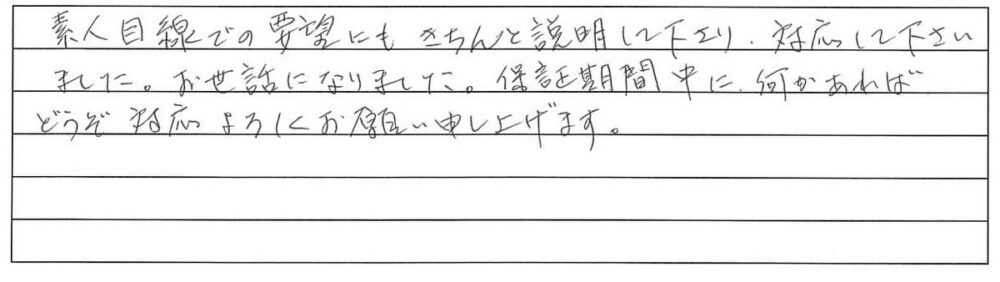 素人目線での要望にもきちんと説明して下さり、対応して下さい
ました。お世話になりました。保証期間中に、何かあれば
どうぞ対応よろしくお願い申し上げます。